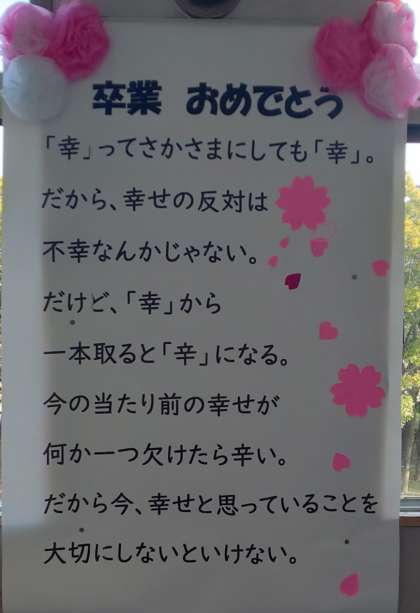 卒業 おめでとう
「幸」ってさかさまにしても「幸」。
だから、幸せの反対は
不幸なんかじゃない。
だけど、「幸」から
一本取ると「辛」になる。
今の当たり前の幸せが
何か一つ欠けたら辛い。
だから今、幸せと思っていることを
大切にしないといけない。